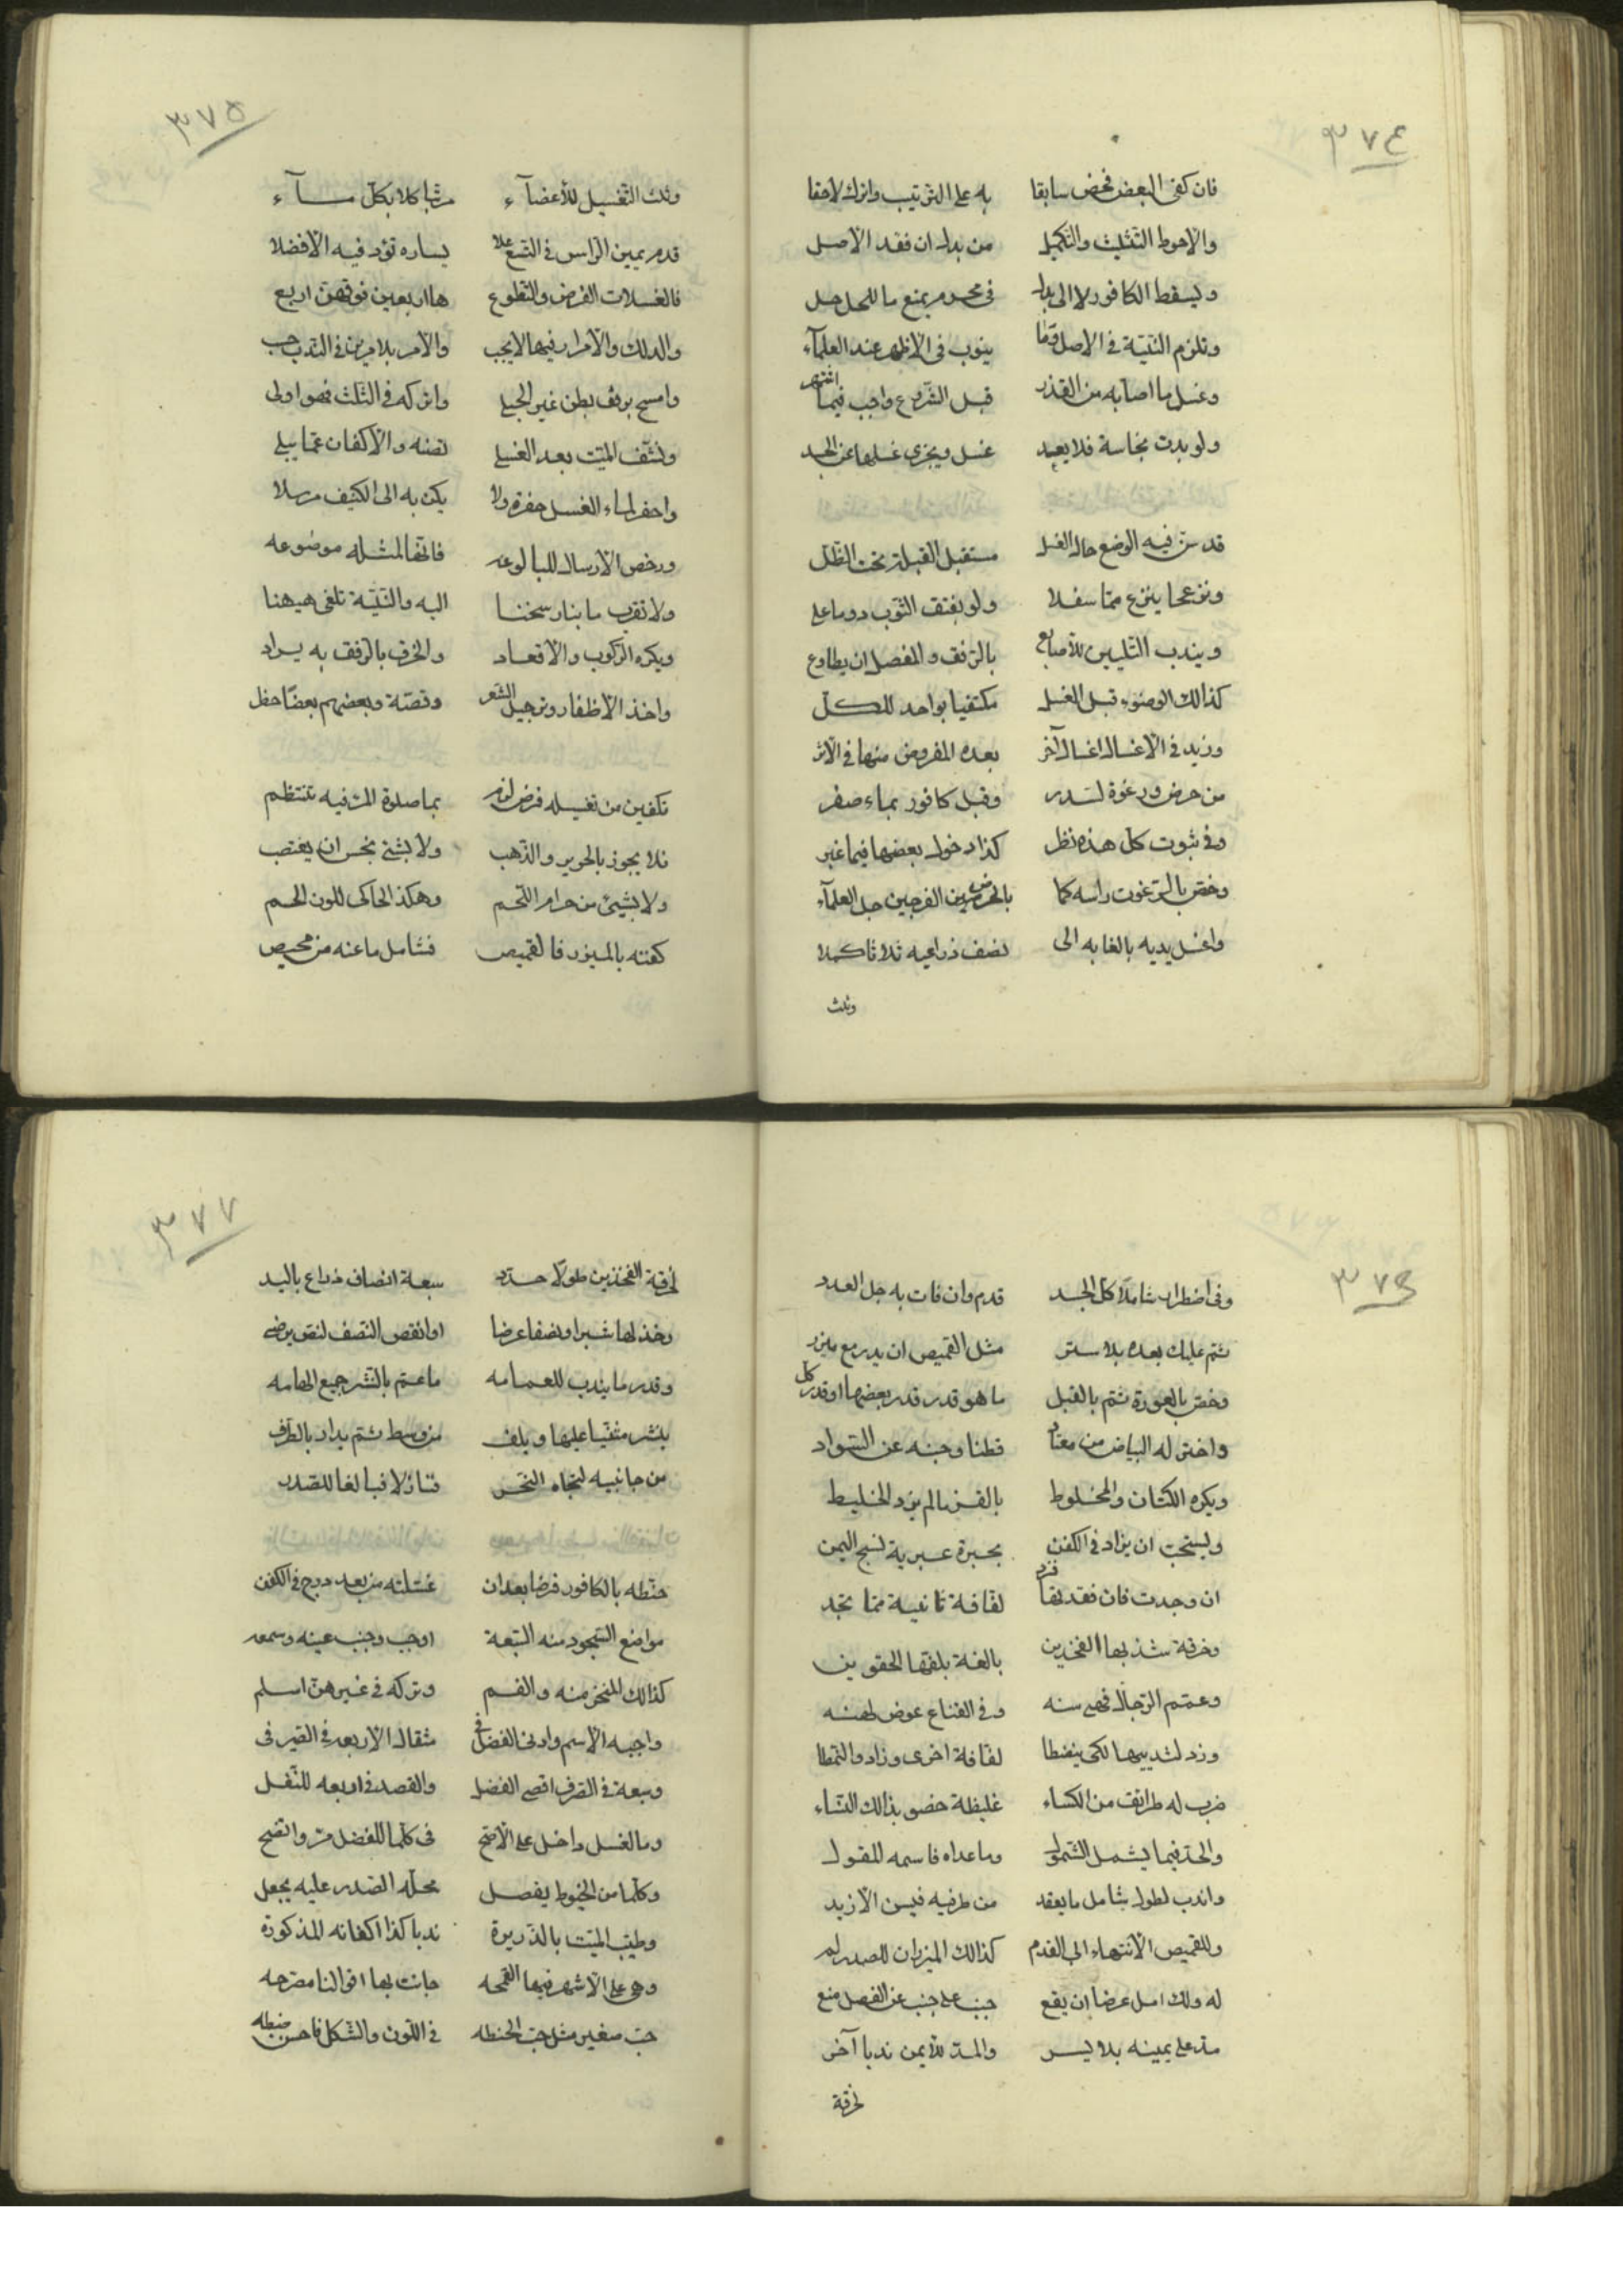 ٣٧٤
فان كفى البعض فخض سابقا به على الترتيب واترك لاحقا
والاحوط التثليث والتكميل من بدل ان فقد الاصل
ويسقط الكافور لا الى بدل فى محرم يمنع ما للمحل حل
وتلزم النيّة فى الاصل وما ينوب فى الاظهر عند العلمآء
وغسل ما اصابه من القذر قبل الشروع واجب فيما اشتهر
ولو بدت نجاسة فلا يعيد غسل ويجزى غسلها عن الجسد
قد سنّ فيه الوضع حال الغسل مستقبل القبلة تحت الظّل
ونزعها ينزع ممّا سفلا ولو بفتق الثّوب دوما على
ويندب التّليين للاصابع بالرّفق والمفصل ان يطاوع
كذالك الوضوء قبل الغسل مكتفيا بواحد للكلّ
وزيد فى الاغسال اغسال أخر بعده المفروض منها فى الاثر
من حرض ورغوة لسدر وقبل كافور بماء صفر
وفى ثبوت كلّ هذه نظر كذا دخول بعضها فيما غبر
وخصّ بالرّغوت راسه كما بالحرض بين الفرجين جلّ العلمآء
واغسل يديه بالغا به الى نصف ذراعيه ثلاثا كملا
وثلث
٣٧٥
وثلث التّغسيل للأعضآء مرتّبا كلا بكلّ مـآء
قدم يمين الرّاس فى التسع علا يساره تؤد فيه الافضلا
فالغسلات الفرض والتّطوع ها اربعين فوقهنّ اربع
والدلك والامرار فيها لا يجب والامر بلا مرين فى النّدب حب
وامسح برفق بطن غير الحبلى واتركه فى الثّلث فهو اولى
ونشّف الميّت بعد الغسل تصنه والاكفان عمّا يبلى
واحفر لماء الغسل حفرة ولا يكن به الى الكنيف مرسلا
ورخص الارسال للبالوعه فانّها لمثله موضوعه
ولا تقرب ما بنار سخنا اليه والنّيّة تلغى هيهنا
ويكره الرّكوب والاقعاد والخرق بالرّفق به يراد
واخذ الاظفار وترجيل الشّعر وقصّة وبعضهم بعضا حظر
تكفين من تغسيله فرض لزم بما صلوة المرء فيه تنتظم
فلا يجوز بالحرير والذّهب ولا بشئ نجس ان يغتصب
ولا بشيئ من حرام اللّحم وهكذا الحاكى للون الجسم
كفنه بالميزر فالقميص فشامل ما عنه من محيص
٣٧٦
وفى اضطرار شاملا كلّ الجسد قدم وان فات به جل العدد
ثم عليك بعده بلا ستر مثل القميص ان يدر مع ميزر
وخصّ بالعورة ثم بالقبل ما هو قدر قدر بعضها او قدر كل
واختر له البياض من معناد قطنا وجنبه عن السّواد
ويكره الكتّان والمخلوط بالقز ما لم يزد الخليط
ويستحبّ ان يزاد فى الكفن بحبرة عبرية نسج اليمن
ان وجدت فان فقدتها فزد لفّافة ثانية ممّا تجد
وخرقة شدّ بها الفخذين بالغة بلفّها الحقوين
وعمّم الرّجال فهى سنه وفى القناع عوض لهنّه
وزد لثدييها لكى ينضبطا لفّافة اخرى وزاد والنّمطا
ضرب له طرائق من الكساء غليظة خصو بذالك النّساء
والحدّ فيما يشمل الشمول وما عداه فاسمه المقول
واندب لطول شامل ما يعقد من طرفيه فيسن الازيد
وللقميص الانتهاء الى القدم كذالك الميزران للصدر لم
له ولك امل عرضا ان يقع جنب على جنب عن الفصل منع
مدّ على يمينه بلا يسر والمدّ للايمن ندبا آخر
لخرقة
٣٧٧
لخرقة الفخذين طولا حدّد سبعة انصاف ذراع باليد
وخذ لها شبرا ونصفا عرضا او انقص النّصف لنصّ يرضى
وقدر ما يندب للعمامه ما عمّ بالنّشر جميع الهامه
ينشر مثنيّا عليها ويلف من وسط ثم يدار بالطّرف
من جانبيه لتجاه النّحر فنازلا فبالغا للصّدر
حنّطه بالكافور فرضا بعد ان غسّلته من بعد درج فى الكفن
مواضع السّجود منه السّبعة اوجب وجنب عينه وسمعه
كذالك المنخر منه والفم وتركه فى غيرهنّ اسلم
واجبه الاسم وادنى الفضل فى مثقال الاربعة فى الصّيرفى
وسبعة فى الصّرف اقصى الفضل والقصد فى اربعه للنّفل
وما لغسل داخل على الاصحّ فى كلّما للفضل مرّ واتّضح
وكلّما من الخيوط يفصل محلّه الصّدر عليه يجعل
وطيّب الميّت بالذّريرة ندبا كذا اكفانه المذكورة
وهى على الاشهر فيها القمحه جانت بها اقوالنا مصرّحه
حبّ صغير مثل حبّ الحنطه فى اللّون والشّكل فاحسن ضبطه